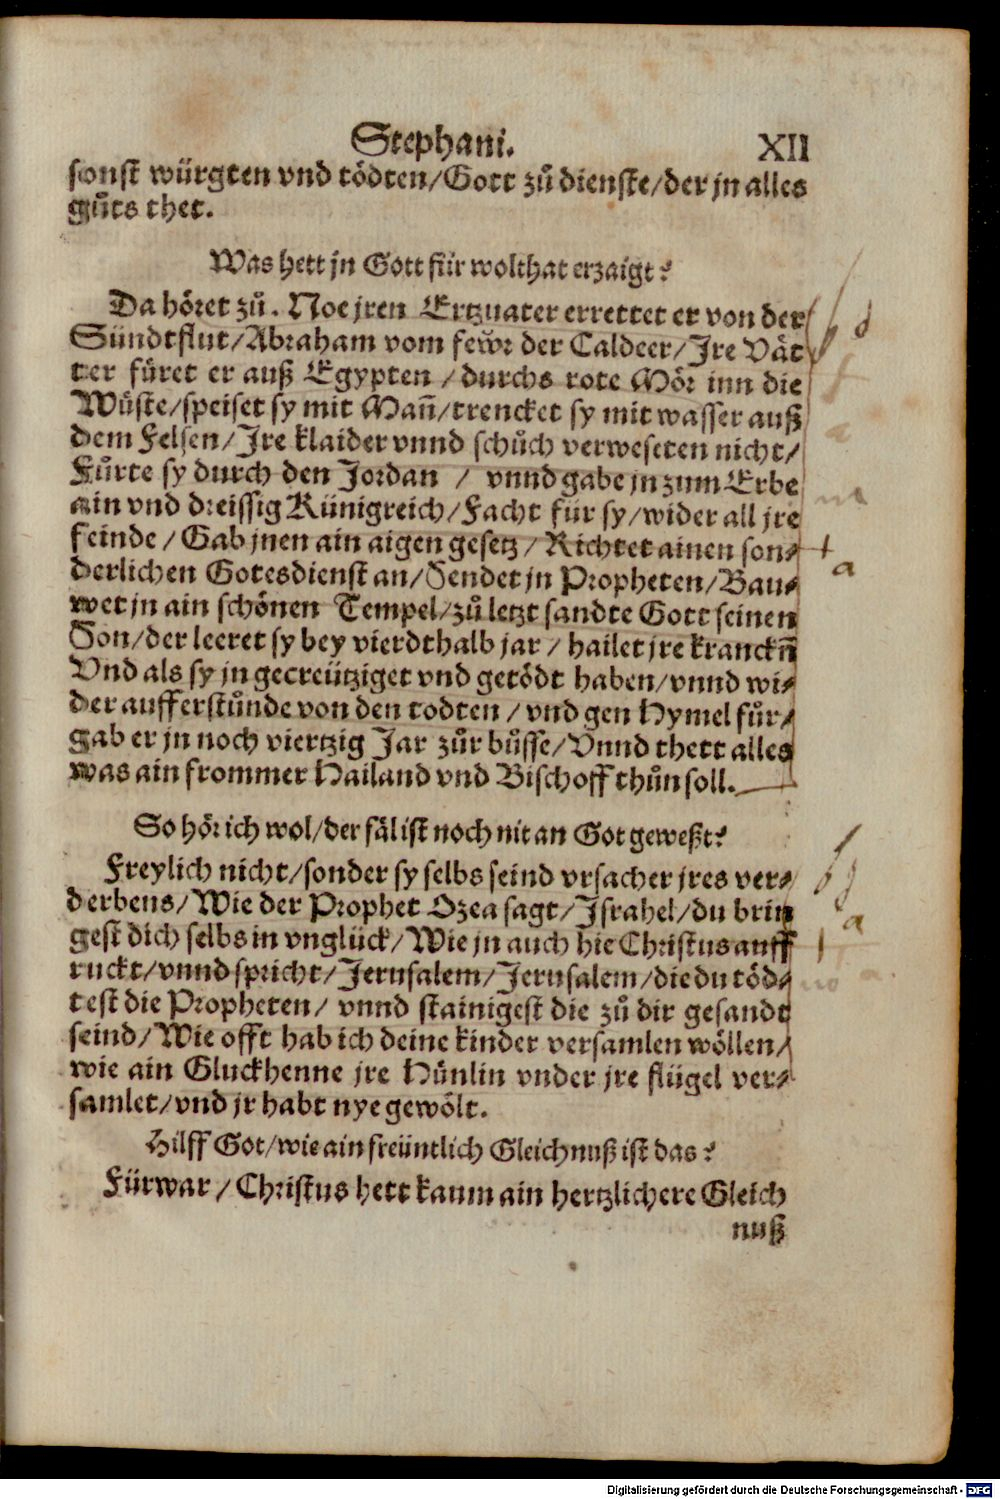 Stephani. XII
sonst würgten vnd tödten/Gott zů dienste/der jn alles
gůts thet.
Was hett jn Gott für wolthat erzaigt?
Da höret zů. Noe jren Ertzuater errettet er von der
Sündtflut/Abraham vom fewr der Caldeer/Jre Vät
ter füret er auß Egypten /durchs rote Mör inn die
Wüste/speiset sy mit Mañ/trencket sy mit wasser auß
dem Felsen/Jre klaider vnnd schůch verweseten nicht/
Fůrte sy durch den Jordan / vnnd gabe jn zum Erbe
ain vnd dreissig Künigreich/Facht für sy/wider all jre
feinde /Gab jnen ain aigen gesetz /Richtet ainen son⸗
derlichen Gotesdienst an/Sendet jn Propheten/Bau⸗
wet jn ain schönen Tempel/zů letzt sandte Gott seinen
Son/der leeret sy bey vierdthalb jar /hailet jre kranckñ
Vnd als sy jn gecreütziget vnd getödt haben/vnnd wi⸗
der aufferstůnde von den todten /vnd gen Hymel fůr/
gab er jn noch viertzig Jar zůr bůsse/Vnnd thett alles
was ain frommer Hailand vnd Bischoff thůn soll.
So hör ich wol/der fäl ist noch nit an Got geweßt?
Freylich nicht/sonder sy selbs seind vrsacher jres ver⸗
derbens/Wie der Prophet Ozea sagt/Jsrahel/du brin
gest dich selbs in vnglück/Wie jn auch hie Christus auff
ruckt/vnnd spricht/Jerusalem/Jerusalem/die du töd⸗
test die Propheten/ vnnd stainigest die zů dir gesandt
seind/Wie offt hab ich deine kinder versamlen wöllen/
wie ain Gluckhenne jre Hünlin vnder jre flügel ver⸗
samlet/vnd jr habt nye gewölt.
Hilff Got/wie ain freüntlich Gleichnuß ist das?
Fürwar /Christus hett kaum ain hertzlichere Gleich
nuß
Digitalisierung gefördert durch die Deutsche Forschungsgemeinschaft - DFG